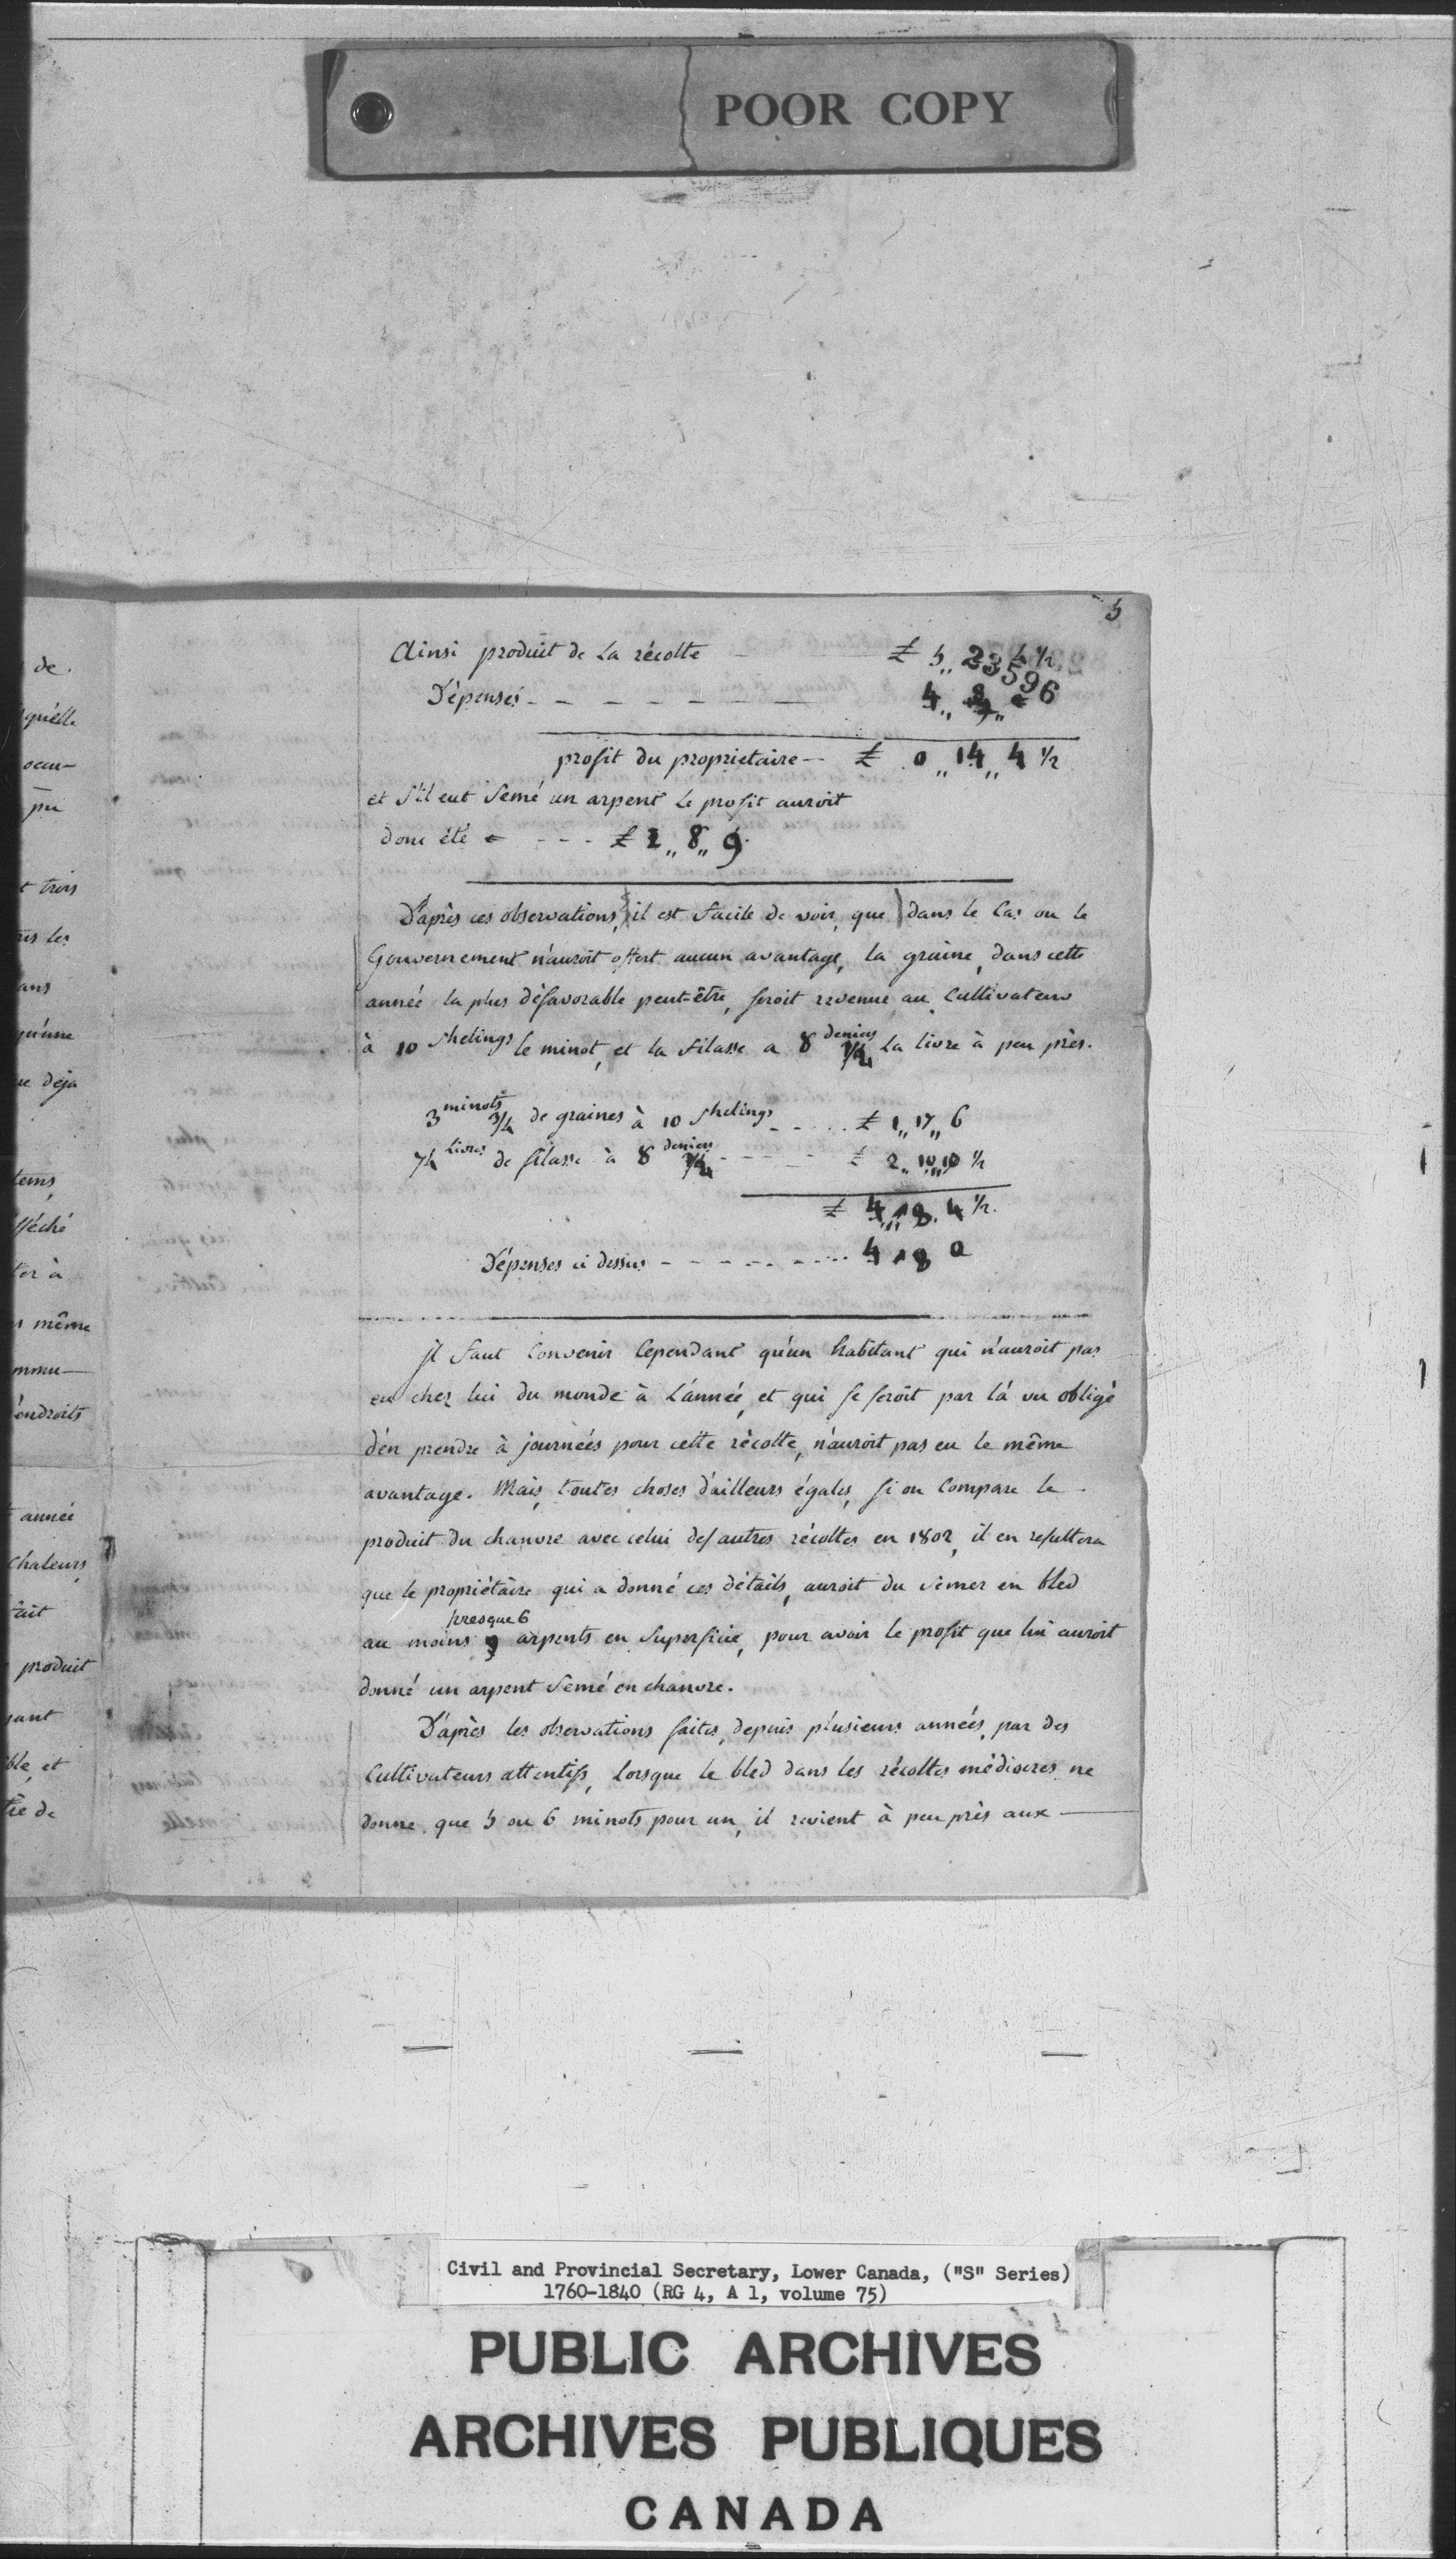 POOR COPY
5
de.
qu'elle
occu-
pu
t trois
les
ans
qu'une
déja
tems,
ter à
même
endroits
année
chaleurs,
produit
et
de
23596
Ainsi produit de la récolte £ 5,, 2 4 ½
Dépenses - - - - - - - 4,, 8
profit du proprietaire -- £ 0,, 14,, 4 ½
et s'il eut semé un arpent le profit auroit
donc été - - - £ 2,, 8,, 9.
D'après ces observations, il est facile de voir, que dans le cas ou le
Gouvernement n'auroit offert aucun avantage, la graine, dans cette
année la plus défavorable peut-être, seroit revenue au Cultivateur
à 10 shelings le minot, et la filasse a 8 deniers ¼ la livre à peu près.
3 minots ¾ de graines à 10 shelings - - - - - £ 1,, 17,, 6
74 livres de filasse à 8 deniers ¼ - - - - - £ 2,, 10,, 10 ½
£ 4,, 18. 4 ½.
Dépenses ci dessus - - - - - - - 4 18 0
Il faut convenir cependant qu'un habitant qui n'auroit pas
eu chez lui du monde à l'année, et qui se seroit par là vu obligé
d'en prendre à journées pour cette récolte, n'auroit pas eu le même
avantage. Mais, toutes choses d'ailleurs égales, si on compare le
produit du chanvre avec celui des autres récoltes en 1802, il en resultera
que le propriétaire qui a donné ces détails, auroit du semer en bled
presque 6
au moins 9 arpents en superficie, pour avoir le profit que lui auroit
donné un arpent semé en chanvre.
D'après les observations faites, depuis plusieurs années, par des
Cultivateurs attentifs, lorsque le bled dans les récoltes médiocres ne
donne que 5 ou 6 minots pour un, il revient à peu près aux
Civil and Provincial Secretary, Lower Canada, ("S" Series)
1760-1840 (RG 4, A 1, volume 75)
PUBLIC ARCHIVES
ARCHIVES PUBLIQUES
CANADA